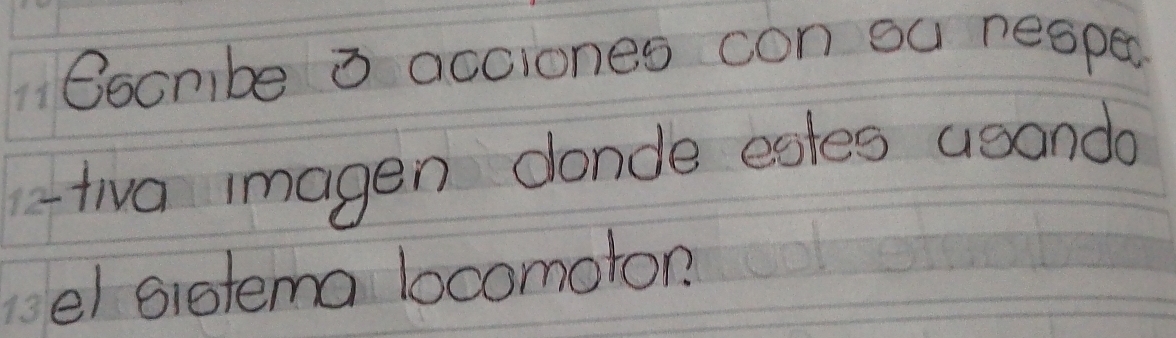 11 Escribe 3 acciones con su respec
12 -tiva imagen donde estes usando
13 el sistema locomotor.